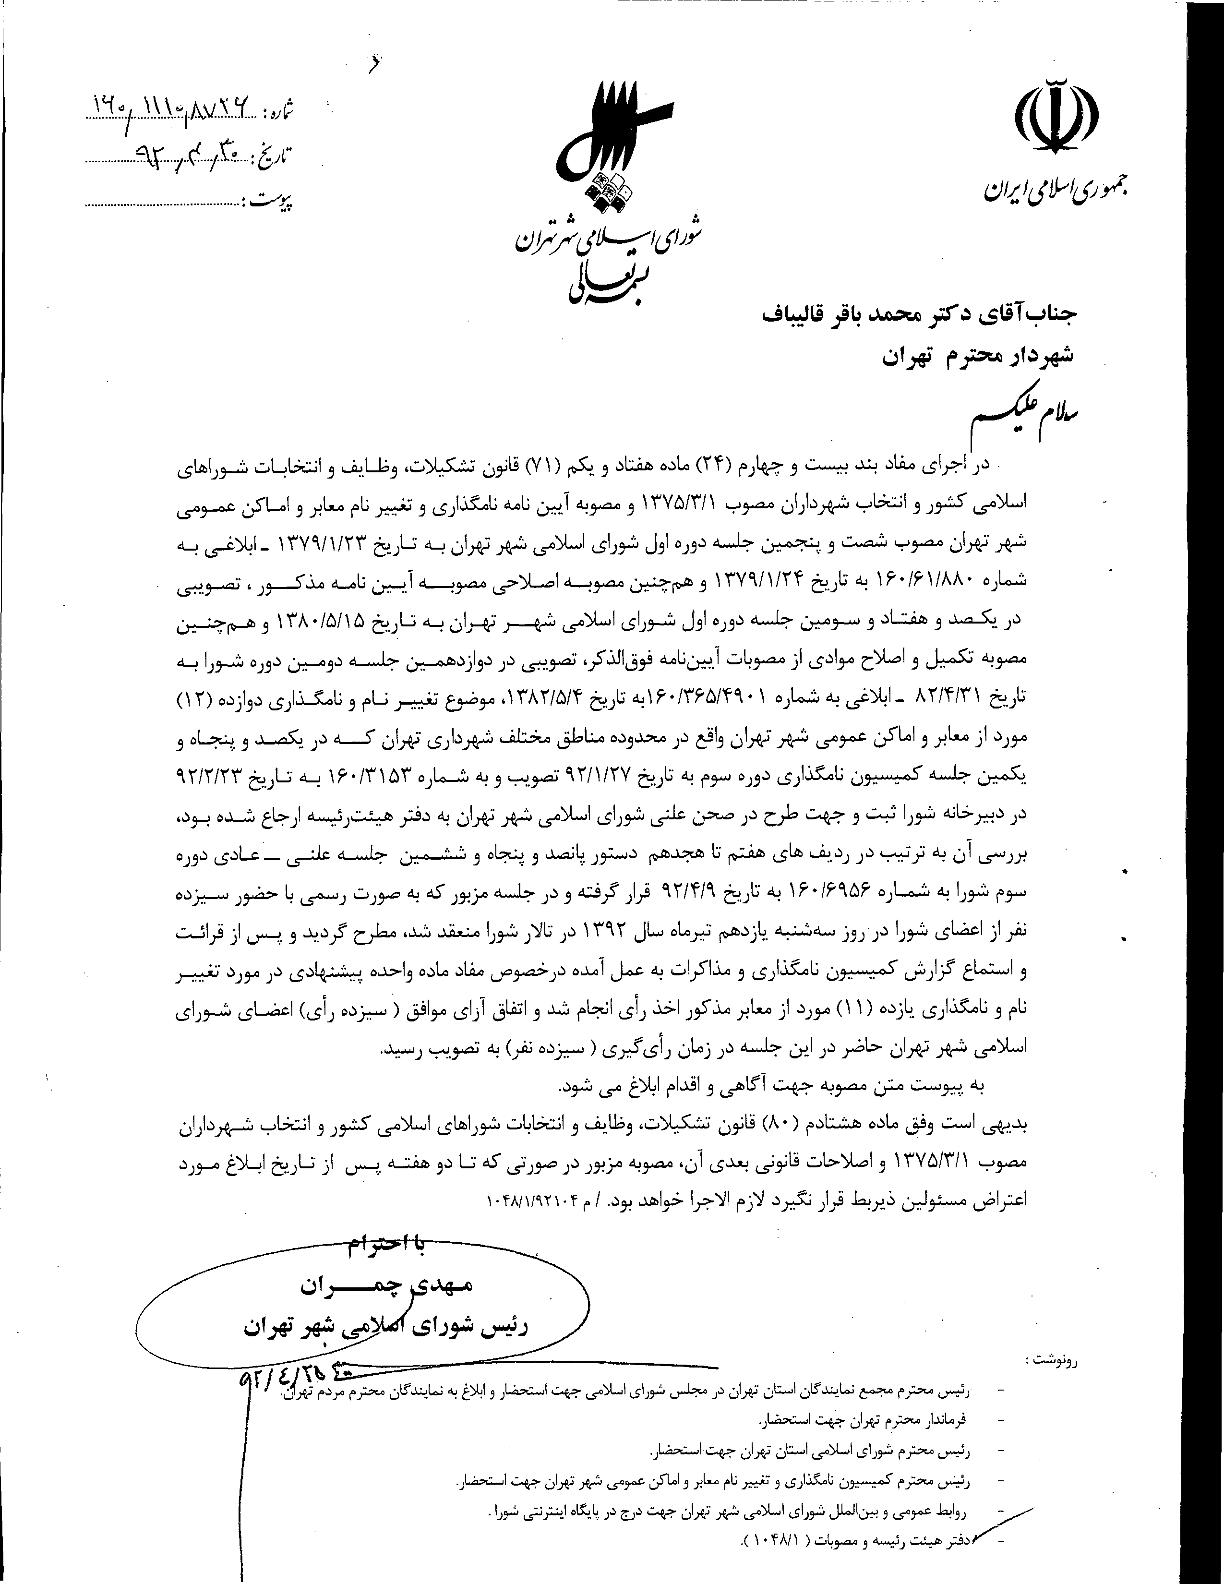 شماره: ۱۶۰/۱۱۱۰/۸۷۲۶
تاریخ: ۹۲/۴/۳۰
پیوست:
جمهوری اسلامی ایران
شورای اسلامی شهر تهران
بسمه تعالی
جناب آقای دکتر محمد باقر قالیباف
شهردار محترم تهران
سلام علیکم
در اجرای مفاد بند بیست و چهارم (۲۴) ماده هفتاد و یکم (۷۱) قانون تشکیلات، وظایف و انتخابات شوراهای
اسلامی کشور و انتخاب شهرداران مصوب ۱۳۷۵/۳/۱ و مصوبه آیین نامه نامگذاری و تغییر نام معابر و اماکن عمومی
شهر تهران مصوب شصت و پنجمین جلسه دوره اول شورای اسلامی شهر تهران به تاریخ ۱۳۷۹/۱/۲۳ ـ ابلاغی به
شماره ۱۶۰/۶۱/۸۸۰ به تاریخ ۱۳۷۹/۱/۲۴ و هم‌چنین مصوبه اصلاحی مصوبه آیین نامه مذکور ، تصویبی
در یکصد و هفتاد و سومین جلسه دوره اول شورای اسلامی شهر تهران به تاریخ ۱۳۸۰/۵/۱۵ و هم‌چنین
مصوبه تکمیل و اصلاح موادی از مصوبات آیین‌نامه فوق‌الذکر، تصویبی در دوازدهمین جلسه دومین دوره شورا به
تاریخ ۸۲/۴/۳۱ ـ ابلاغی به شماره ۱۶۰/۳۶۵/۴۹۰۱به تاریخ ۱۳۸۲/۵/۴، موضوع تغییر نام و نامگذاری دوازده (۱۲)
مورد از معابر و اماکن عمومی شهر تهران واقع در محدوده مناطق مختلف شهرداری تهران که در یکصد و پنجاه و
یکمین جلسه کمیسیون نامگذاری دوره سوم به تاریخ ۹۲/۱/۲۷ تصویب و به شماره ۱۶۰/۳۱۵۳ به تاریخ ۹۲/۲/۲۳
در دبیرخانه شورا ثبت و جهت طرح در صحن علنی شورای اسلامی شهر تهران به دفتر هیئت‌رئیسه ارجاع شده بود،
بررسی آن به ترتیب در ردیف های هفتم تا هجدهم دستور پانصد و پنجاه و ششمین جلسه علنی ـ عادی دوره
سوم شورا به شماره ۱۶۰/۶۹۵۶ به تاریخ ۹۲/۴/۹ قرار گرفته و در جلسه مزبور که به صورت رسمی با حضور سیزده
نفر از اعضای شورا در روز سه‌شنبه یازدهم تیرماه سال ۱۳۹۲ در تالار شورا منعقد شد، مطرح گردید و پس از قرائت
و استماع گزارش کمیسیون نامگذاری و مذاکرات به عمل آمده درخصوص مفاد ماده واحده پیشنهادی در مورد تغییر
نام و نامگذاری یازده (۱۱) مورد از معابر مذکور اخذ رأی انجام شد و اتفاق آرای موافق ( سیزده رأی) اعضای شورای
اسلامی شهر تهران حاضر در این جلسه در زمان رأی‌گیری ( سیزده نفر) به تصویب رسید.
به پیوست متن مصوبه جهت آگاهی و اقدام ابلاغ می شود.
بدیهی است وفق ماده هشتادم (۸۰) قانون تشکیلات، وظایف و انتخابات شوراهای اسلامی کشور و انتخاب شهرداران
مصوب ۱۳۷۵/۳/۱ و اصلاحات قانونی بعدی آن، مصوبه مزبور در صورتی که تا دو هفته پس از تاریخ ابلاغ مورد
اعتراض مسئولین ذیربط قرار نگیرد لازم الاجرا خواهد بود. / م ۱۰۴۸/۱/۹۲۱۰۴
با احترام
مهدی چمران
رئیس شورای اسلامی شهر تهران
۹۲/۴/۲۵
رونوشت :
- رئیس محترم مجمع نمایندگان استان تهران در مجلس شورای اسلامی جهت استحضار و ابلاغ به نمایندگان محترم مردم تهران.
- فرماندار محترم تهران جهت استحضار.
- رئیس محترم شورای اسلامی استان تهران جهت استحضار.
- رئیس محترم کمیسیون نامگذاری و تغییر نام معابر و اماکن عمومی شهر تهران جهت استحضار.
- روابط عمومی و بین‌الملل شورای اسلامی شهر تهران جهت درج در پایگاه اینترنتی شورا.
- دفتر هیئت رئیسه و مصوبات ( ۱۰۴۸/۱ ).